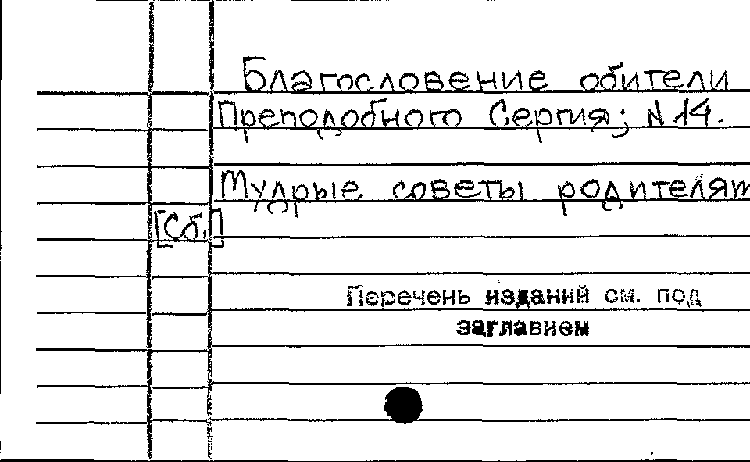 Благословение обители
Преподобного Сергия; N 14.
Мудрые советы родителям
[Сб.]
Перечень изданий см. под
заглавием